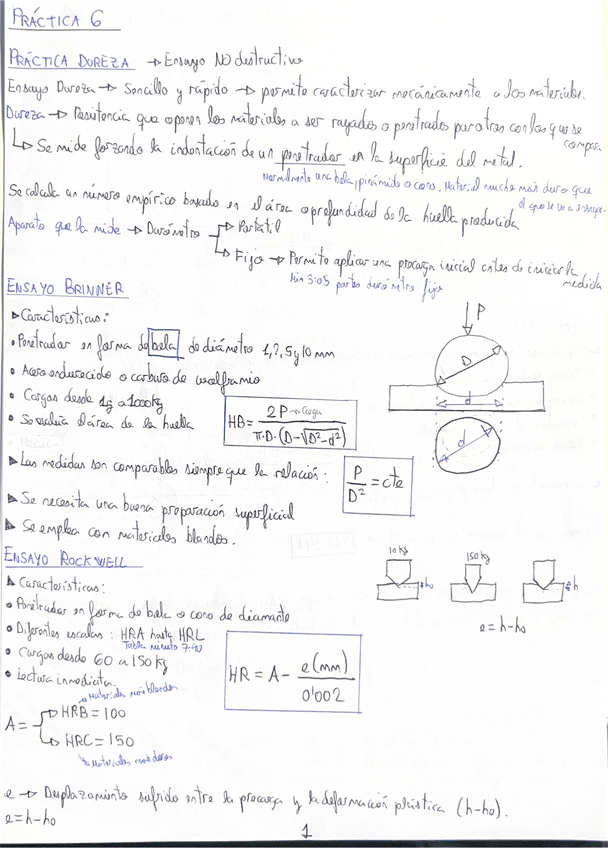 PRÁCTICA 6
PRÁCTICA DUREZA → Ensayo NO destructivo
Ensayo Dureza → Sencillo y rápido → permite caracterizar mecánicamente a los materiales.
Dureza → Resistencia que oponen los materiales a ser rayados o penetrados por otros con los que se compara
↳ Se mide forzando la indentación de un penetrador en la superficie del metal.
Normalmente una bola, pirámide o cono. Material mucho más duro que el que se va a ensayar.
Se calcula un número empírico basado en el área o profundidad de la huella producida
Aparato que la mide → Durómetro → Portátil
↳ Fijo → Permite aplicar una precarga inicial antes de iniciar la medida
Min 3:05 partes durómetro fijo
ENSAYO BRINNER
▸ Características:
• Penetrador en forma de bola de diámetro 1, 2, 5 y 10 mm
• Acero endurecido o carburo de wolframio
• Cargas desde 1g a 1000kg
• Se evalúa el área de la huella
HB = 2P → Carga / π·D·(D-√D²-d²)
P
D
d
d
▸ Las medidas son comparables siempre que la relación: P/D² = cte
▸ Se necesita una buena preparación superficial
▸ Se emplea con materiales blandos.
ENSAYO ROCKWELL
▸ Características:
• Penetrador en forma de bola o cono de diamante
• Diferentes escalas: HRA hasta HRL
Tabla minuto 7:40
• Cargas desde 60 a 150 kg
• Lectura inmediata.
10 kg
150 kg
h₀
h
e = h-h₀
HR = A - e(mm) / 0'002
Materiales más blandos
A = → HRB = 100
↳ HRC = 150
Materiales más duros
e → Desplazamiento sufrido entre la precarga y la deformación plástica (h-h₀).
e = h-h₀
1